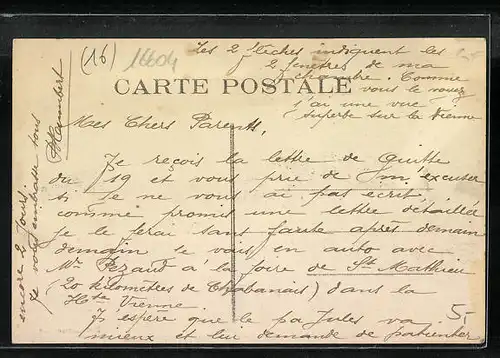 (16) 16604
Les 2 flèches indiquent les
2 fenêtres de ma
chambre. Comme
vous le voyez
j'ai une vue
superbe sur la Vienne
CARTE POSTALE
Mes Chers Parents,
Je reçois la lettre de Quitte
du 19 et vous prie de m'excuser
si je ne vous ai pas écrit
comme promis une lettre détaillée
je le ferai sans faute après demain
demain je vais en auto avec
Mr Pezaud à la foire de St Mathieu
(20 kilomètres de Chabanais) dans la
Hte Vienne
J'espère que le pa Jules va
mieux et lui demande de patienter
encore 2 jours.
Je vous embrasse tous
5,